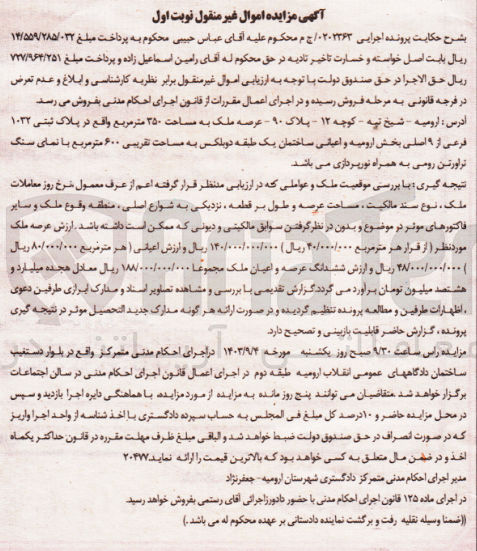 آگهی مزایده اموال غیر منقول نوبت اول
بشرح حکایت پرونده اجرایی ۰۲۰۲۳۶۳/ج م محکوم علیه آقای عباس حبیبی محکوم به پرداخت مبلغ ۱۴/۵۵۹/۲۸۵/۰۳۲
ریال بابت اصل خواسته و خسارت تاخیر تادیه در حق محکوم له آقای رامین اسماعیل زاده و پرداخت مبلغ ۷۲۷/۹۶۴/۲۵۱
ریال حق الاجرا در حق صندوق دولت با توجه به ارزیابی اموال غیرمنقول برابر نظریه کارشناسی و ابلاغ و عدم تعرض
در فرجه قانونی به مرحله فروش رسیده و در اجرای اعمال مقررات از قانون اجرای احکام مدنی بفروش می رسد.
آدرس : ارومیه - شیخ تپه - کوچه ۱۲ - پلاک ۹۰ - عرصه ملک به مساحت ۳۵۰ مترمربع واقع در پلاک ثبتی ۱۰۳۲
فرعی از ۹ اصلی بخش ارومیه و اعیانی ساختمان یک طبقه دوبلکس به مساحت تقریبی ۶۰۰ مترمربع با نمای سنگ
تراورتن رومی به همراه نورپردازی می باشد.
نتیجه گیری : با بررسی موقعیت ملک و عواملی که در ارزیابی مدنظر قرار گرفته اعم از عرف معمول ،نرخ روز معاملات
ملک ، نوع سند مالکیت ، مساحت عرصه و طول بر قطعه ، نزدیکی به شوارع اصلی ، منطقه وقوع ملک و سایر
فاکتورهای موثر در موضوع و بدون در نظر گرفتن سوابق مالکیتی و دیونی که ممکن است داشته باشد . ارزش عرصه ملک
موردنظر ( از قرار هر مترمربع ۴۰۰/۰۰۰/۰۰۰ ریال ) ۱۴۰/۰۰۰/۰۰۰/۰۰۰ ریال و ارزش اعیانی ( هر مترمربع ۸۰/۰۰۰/۰۰۰ ریال
) ۴۸/۰۰۰/۰۰۰/۰۰۰ ریال و ارزش ششدانگ عرصه و اعیان ملک مجموعا ۱۸۸/۰۰۰/۰۰۰/۰۰۰ ریال معادل هجده میلیارد و
هشتصد میلیون تومان برآورد می گردد.گزارش تقدیمی با بررسی و مشاهده تصاویر اسناد و مدارک ابرازی طرفین دعوی
، اظهارات طرفین و مطالعه پرونده تنظیم گردیده و در صورت ارائه هر گونه مدارک جدید التحصیل موثر در نتیجه گیری
پرونده ، گزارش حاضر قابلیت بازبینی و تصحیح دارد.
مزایده راس ساعت ۹/۳۰ صبح روز یکشنبه مورخه ۱۴۰۳/۹/۴ در اجرای احکام مدنی متمرکز واقع در بلوار دستغیب
ساختمان دادگاههای عمومی انقلاب ارومیه طبقه دوم در اجرای اعمال قانون اجرای احکام مدنی در سالن اجتماعات
برگزار خواهد شد .متقاضیان می توانند پنج روز مانده به مزایده از مورد مزایده، با هماهنگی دایره اجرا بازدید و سپس
در محل مزایده حاضر و ۱۰درصد کل مبلغ فی المجلس به حساب سپرده دادگستری با اخذ شناسه از واحد اجرا واریز
که در صورت انصراف در حق صندوق دولت ضبط خواهد شد و الباقی مبلغ ظرف مهلت مقرره در قانون حداکثر یکماه
اخذ و در ضمن مال متعلق به کسی خواهد بود که بالاترین قیمت را ارائه نماید.۲۰۴۷۷
مدیر اجرای احکام مدنی متمرکز دادگستری شهرستان ارومیه- جعفرنژاد
در اجرای ماده ۱۲۵ قانون اجرای احکام مدنی با حضور دادورزاجرائی آقای رستمی بفروش خواهد رسید.
((ضمنا وسیله نقلیه رفت و برگشت نماینده دادستانی بر عهده محکوم له می باشد .)